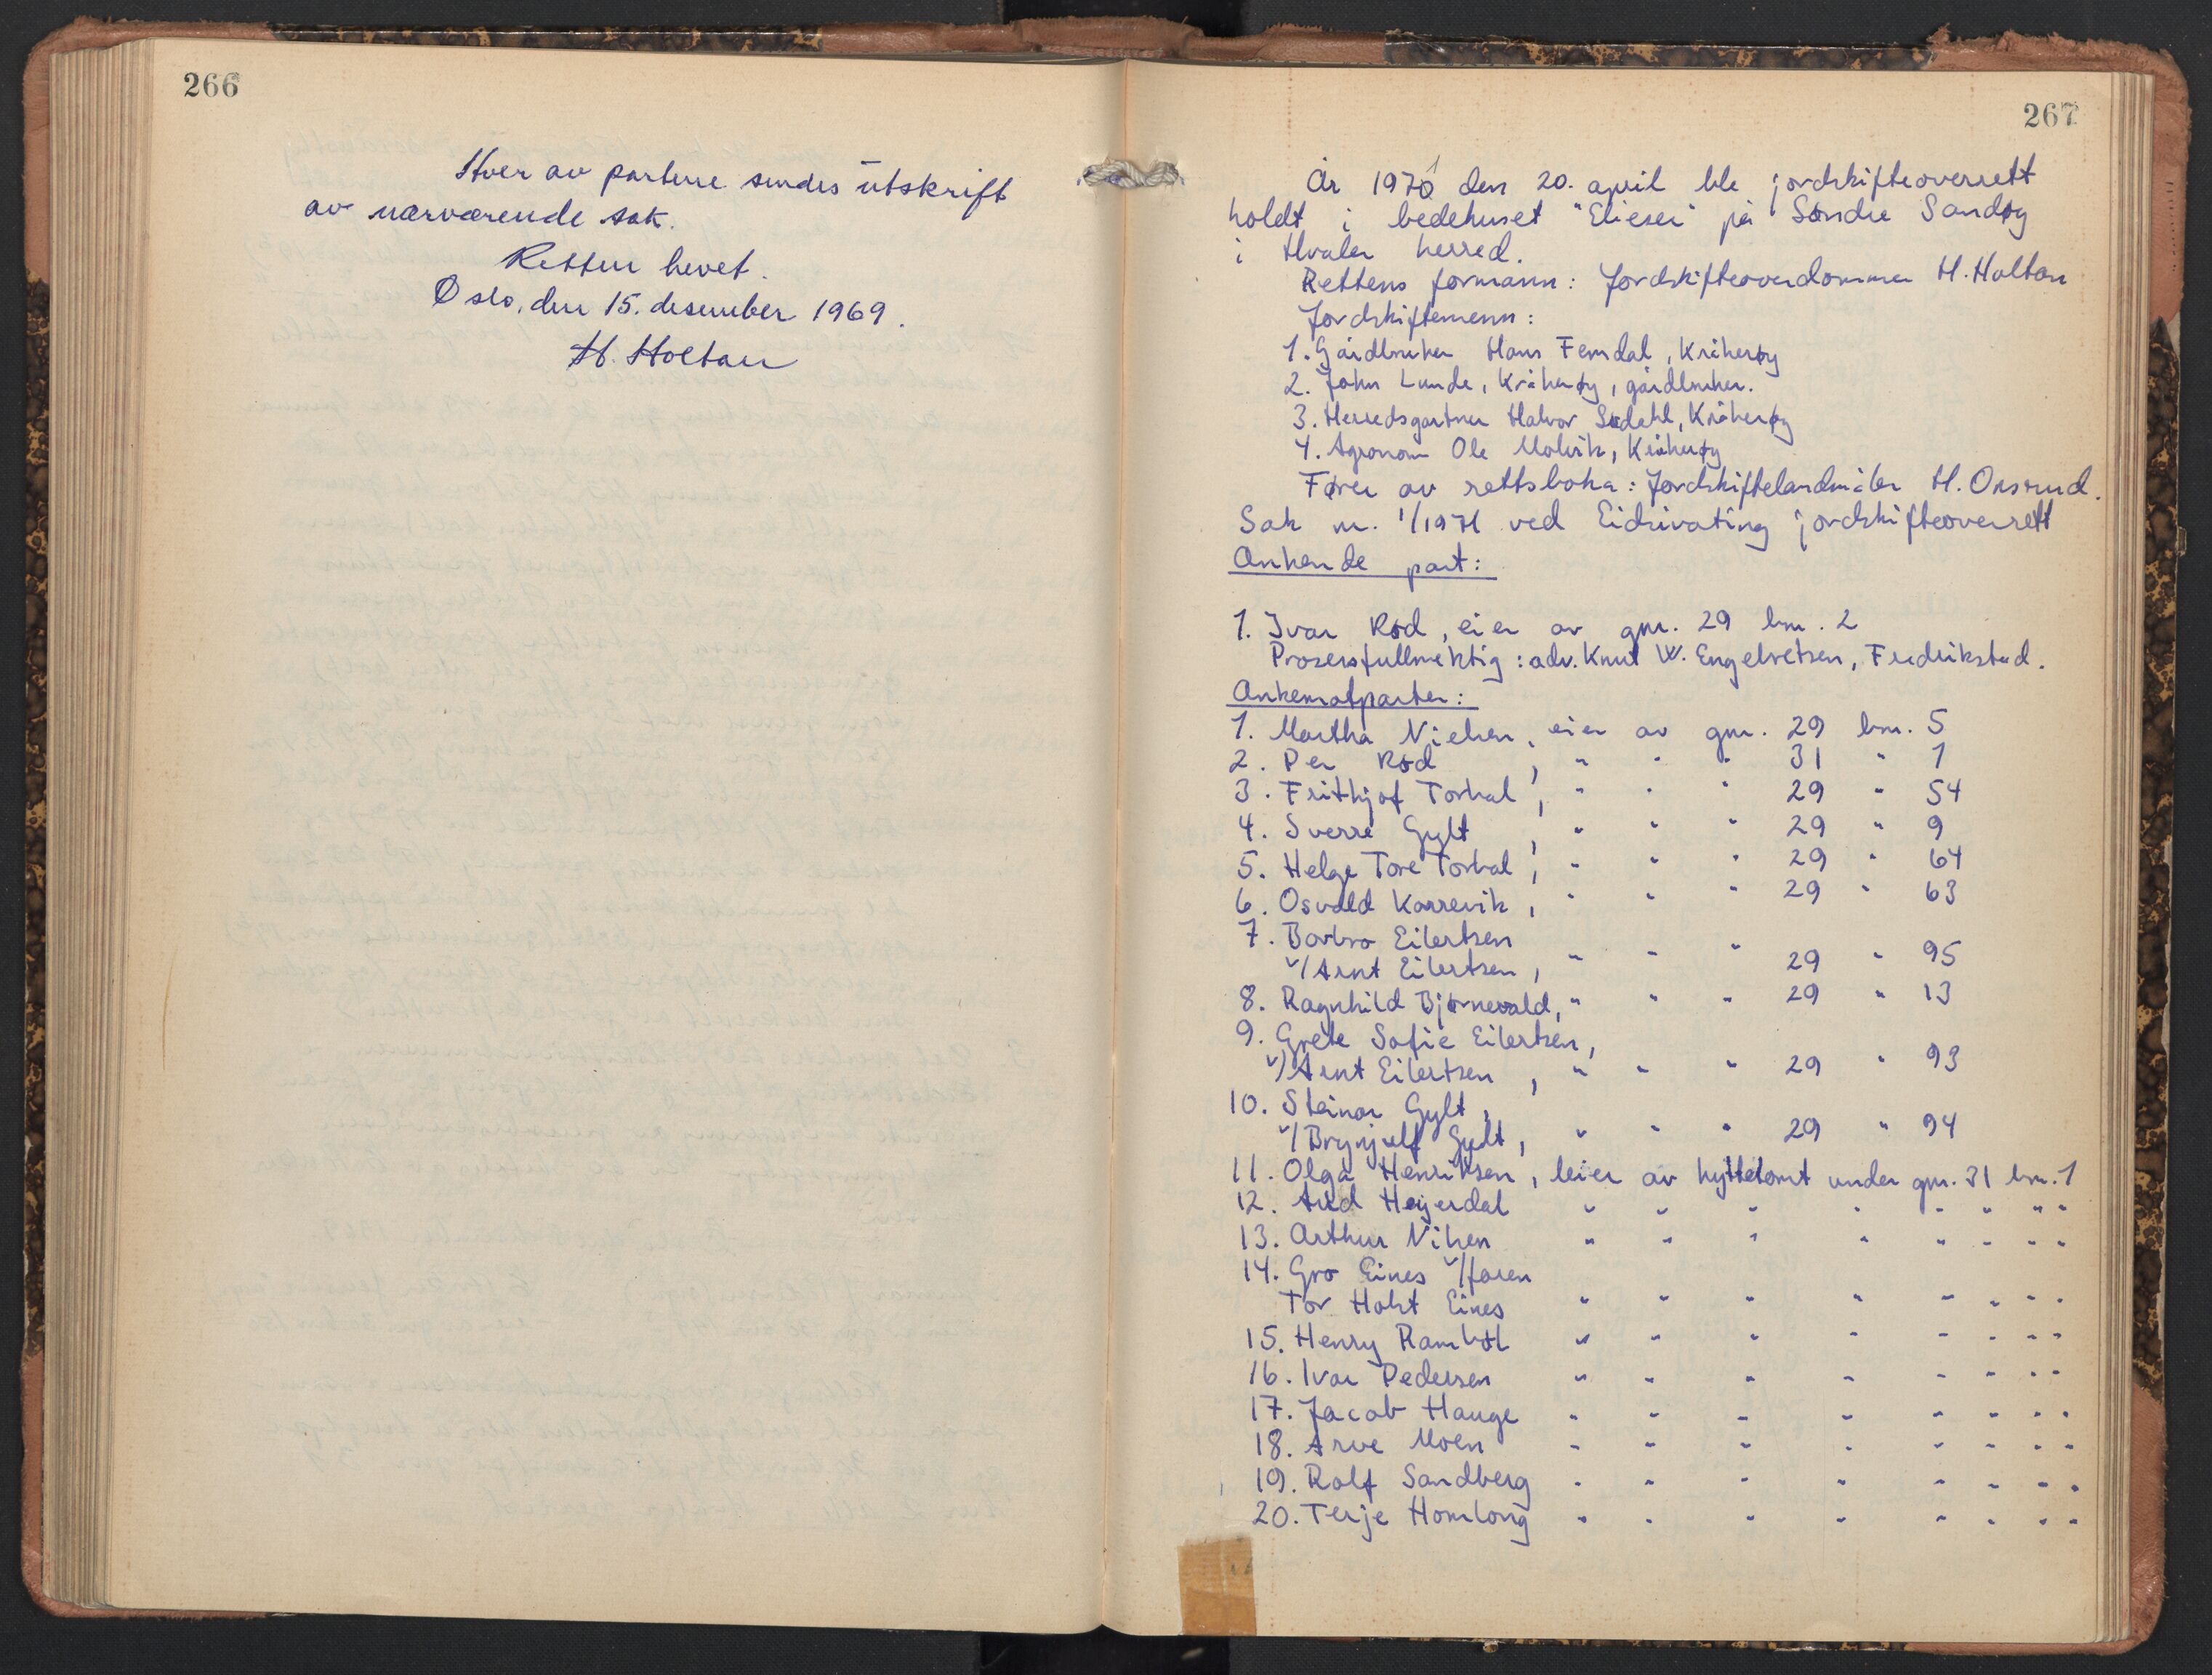 266
Hver av partene sendes utskrift
av nærværende sak.
Retten hevet.
Oslo, den 15. desember 1969.
H. Holtan
267
År 1971 den 20. april ble jordskifteoverrett
holdt i bedehuset "Elieser" på Søndre Sandøy
i Hvaler herred.
Rettens formann: Jordskifteoverdommer H. Holtan
Jordskiftemenn:
1. Gårdbruker Hans Femdal, Kråkerøy
2. John Lunde, Kråkerøy, gårdbruker.
3. Herredsgartner Halvor Sødahl, Kråkerøy
4. Agronom Ole Molvik, Kråkerøy
Fører av rettsboka: Jordskiftelandmåler H. Onsrud.
Sak nr. 1/1971 ved Eidsivating jordskifteoverrett
Ankende part:
1. Ivar Rød, eier av gnr. 29 bnr. 2
Prosessfullmektig: adv. Knut W. Engelvetsen, Fredrikstad.
Ankemotparter:
1. Martha Nielsen, eier av gnr. 29 bnr. 5
2. Per Rød , " " " 31 " 1
3. Frithjof Torkal , " " " 29 " 54
4. Sverre Gylt , " " " 29 " 9
5. Helge Tore Torkal , " " " 29 " 64
6. Osvald Karrevik , " " " 29 " 63
7. Barbro Eilertsen
v/Arnt Eilertsen , " " " 29 " 95
8. Ragnhild Bjørnevald, " " " 29 " 13
9. Grete Sofie Eilertsen,
v/Arnt Eilertsen , " " " 29 " 93
10. Steinar Gylt,
v/Brynjulf Gylt, " " " 29 " 94
11. Olga Henriksen, leier av hyttetomt under gnr. 31 bnr. 1
12. Arild Heyerdal " " " " " " " "
13. Arthur Nilsen " " " " " " " "
14. Gro Eines v/faren
Tor Holst Eines " " " " " " " "
15. Henry Rambøl " " " " " " " "
16. Ivar Pedersen " " " " " " " "
17. Jacob Hauge " " " " " " " "
18. Arve Moen " " " " " " " "
19. Rolf Sandberg " " " " " " " "
20. Terje Homlong " " " " " " " "